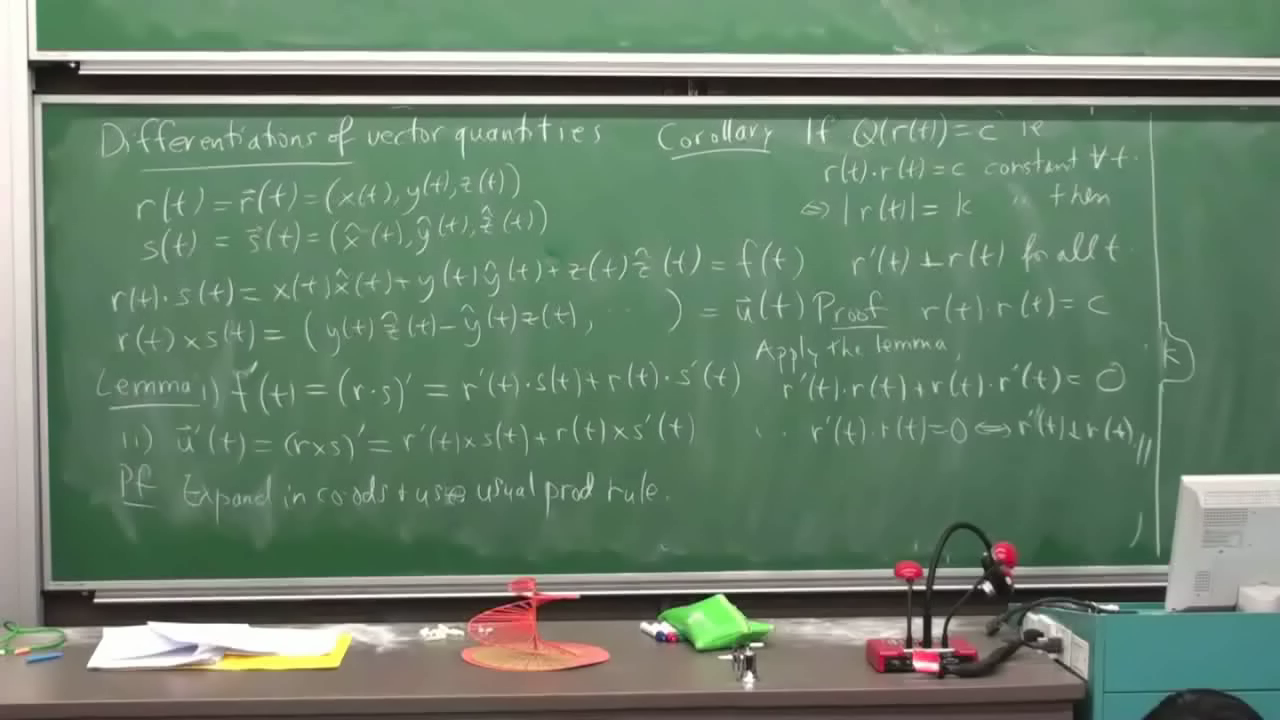 Differentiations of vector quantities
r(t) = r⃗(t) = (x(t), y(t), z(t))
s(t) = s⃗(t) = (x̂(t), ŷ(t), ẑ(t))
r(t)·s(t) = x(t)x̂(t) + y(t)ŷ(t) + z(t)ẑ(t) = f(t)
r(t) × s(t) = (y(t)ẑ(t) − ŷ(t)z(t), ··· ) = u⃗(t)
Lemma i) f'(t) = (r·s)' = r'(t)·s(t) + r(t)·s'(t)
ii) u⃗'(t) = (r×s)' = r'(t)×s(t) + r(t)×s'(t)
Pf Expand in co·ods + use usual prod rule.
Corollary If Q(r(t)) = c ie
r(t)·r(t) = c constant ∀t.
⇔ |r(t)| = k " then
r'(t) ⊥ r(t) for all t.
Proof r(t)·r(t) = c
Apply the lemma,
r'(t)·r(t) + r(t)·r'(t) = 0
∴ r'(t)·r(t) = 0 ⇔ r'(t) ⊥ r(t) //
k